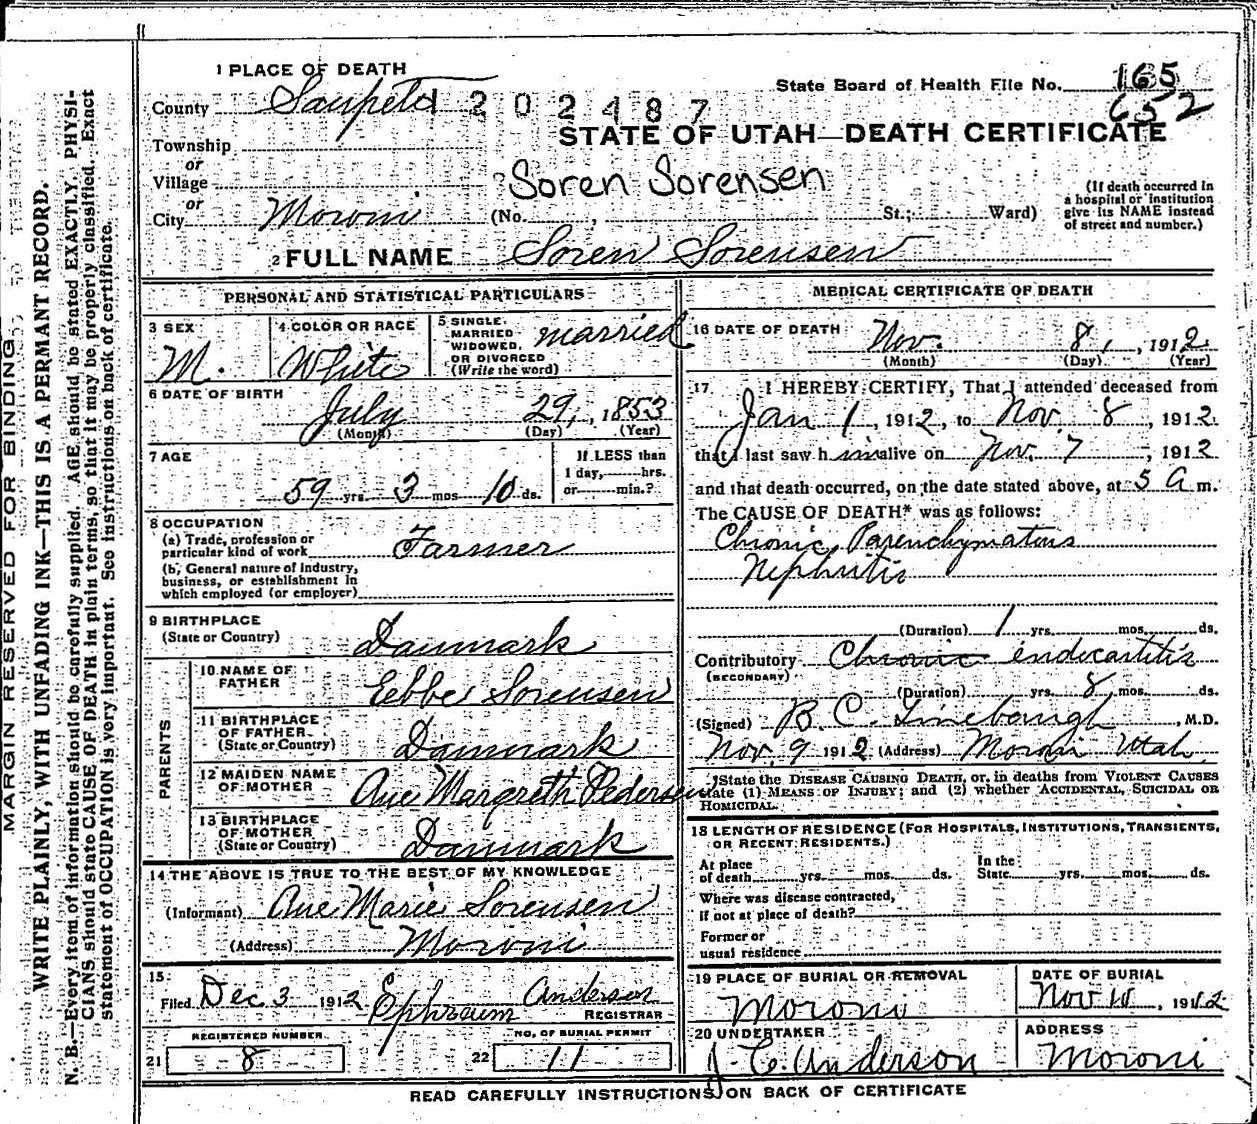 1 PLACE OF DEATH
State Board of Health File No. 165
652
County Sanpete 1202487
STATE OF UTAH—DEATH CERTIFICATE
Township
or
Village
Soren Sorensen
or
City Moroni (No. , St.; Ward)
(If death occurred in a hospital or institution give its NAME instead of street and number.)
2 FULL NAME Soren Sorensen
PERSONAL AND STATISTICAL PARTICULARS
3 SEX M.
4 COLOR OR RACE White
5 SINGLE, MARRIED, WIDOWED, OR DIVORCED (Write the word) married
6 DATE OF BIRTH July 29, 1853
(Month) (Day) (Year)
7 AGE 59 yrs. 3 mos 10 ds.
If LESS than 1 day, hrs. or min.?
8 OCCUPATION
(a) Trade, profession or particular kind of work Farmer
(b) General nature of industry, business, or establishment in which employed (or employer)
9 BIRTHPLACE (State or Country) Danmark
PARENTS
10 NAME OF FATHER Eebbe Sorensen
11 BIRTHPLACE OF FATHER (State or Country) Danmark
12 MAIDEN NAME OF MOTHER Ane Margreth Pedersen
13 BIRTHPLACE OF MOTHER (State or Country) Danmark
14 THE ABOVE IS TRUE TO THE BEST OF MY KNOWLEDGE
(Informant) Ane Marie Sorensen
(Address) Moroni
15
Filed Dec 3 1912 Ephraim Anderson
REGISTRAR
REGISTERED NUMBER
21 8
NO. OF BURIAL PERMIT
22 11
MEDICAL CERTIFICATE OF DEATH
16 DATE OF DEATH Nov. 8, , 1912.
(Month) (Day) (Year)
17 I HEREBY CERTIFY, That I attended deceased from
Jan 1, 1912, to Nov. 8, 1912.
that I last saw him alive on Nov. 7, 1912
and that death occurred, on the date stated above, at 5 a m.
The CAUSE OF DEATH* was as follows:
Chronic Parenchymatous
Nephritis
(Duration) 1 yrs. mos. ds.
Contributory (SECONDARY) Chronic endocartitis
(Duration) yrs. 8 mos. ds.
(Signed) B. C. Linebaugh, M.D.
Nov. 9 1912 (Address) Moroni Utah
*State the DISEASE CAUSING DEATH, or, in deaths from VIOLENT CAUSES
state (1) MEANS OF INJURY; and (2) whether ACCIDENTAL, SUICIDAL OR
HOMICIDAL.
18 LENGTH OF RESIDENCE (FOR HOSPITALS, INSTITUTIONS, TRANSIENTS,
OR RECENT RESIDENTS.)
At place of death yrs. mos. ds. In the State yrs. mos. ds.
Where was disease contracted,
if not at place of death?
Former or
usual residence
19 PLACE OF BURIAL OR REMOVAL Moroni
DATE OF BURIAL Nov 10, 1912
20 UNDERTAKER J. C. Anderson
ADDRESS Moroni
READ CAREFULLY INSTRUCTIONS ON BACK OF CERTIFICATE
MARGIN RESERVED FOR BINDING
WRITE PLAINLY, WITH UNFADING INK—THIS IS A PERMANT RECORD.
N. B.—Every item of information should be carefully supplied. AGE should be stated EXACTLY. PHYSI-
CIANS should state CAUSE OF DEATH in plain terms, so that it may be properly classified. Exact
statement of OCCUPATION is very important. See instructions on back of certificate.